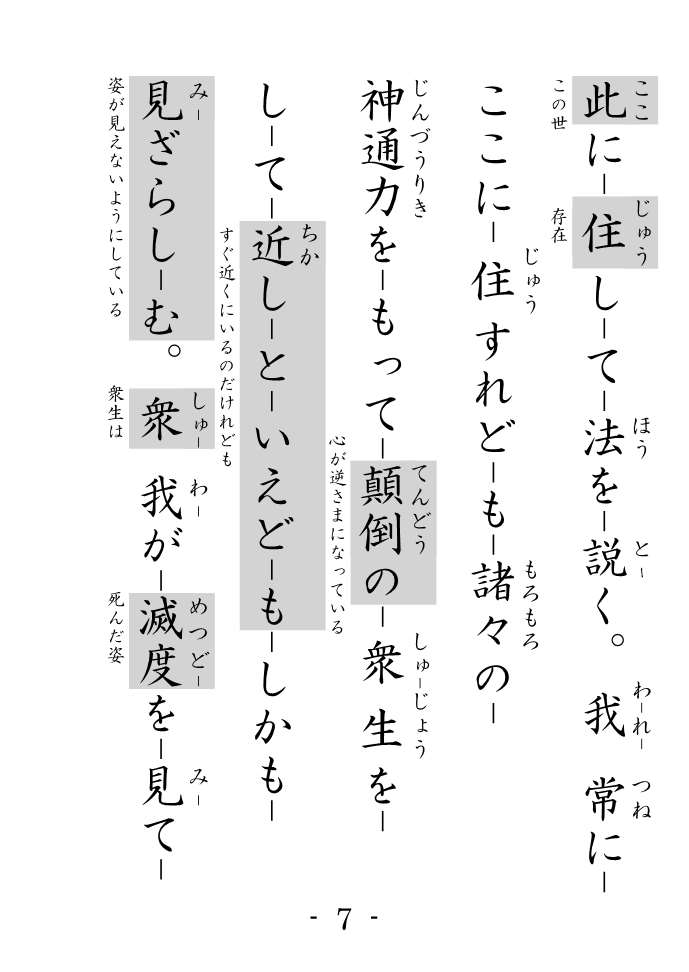 此に―住し―て―法を―説く。我常に―
ここ じゅう ほう と― わ―れ― つね
この世 存在
ここに―住すれど―も―諸々の―
じゅう もろもろ
神通力を―もって―顛倒の―衆生を―
じんづうりき てんどう しゅ―じょう
心が逆さまになっている
し―て―近し―と―いえど―も―しかも―
ちか
すぐ近くにいるのだけれども
見ざらし―む。衆我が―滅度を―見て―
み― しゅ― わ― めつど― み―
姿が見えないようにしている 衆生は 死んだ姿
- 7 -